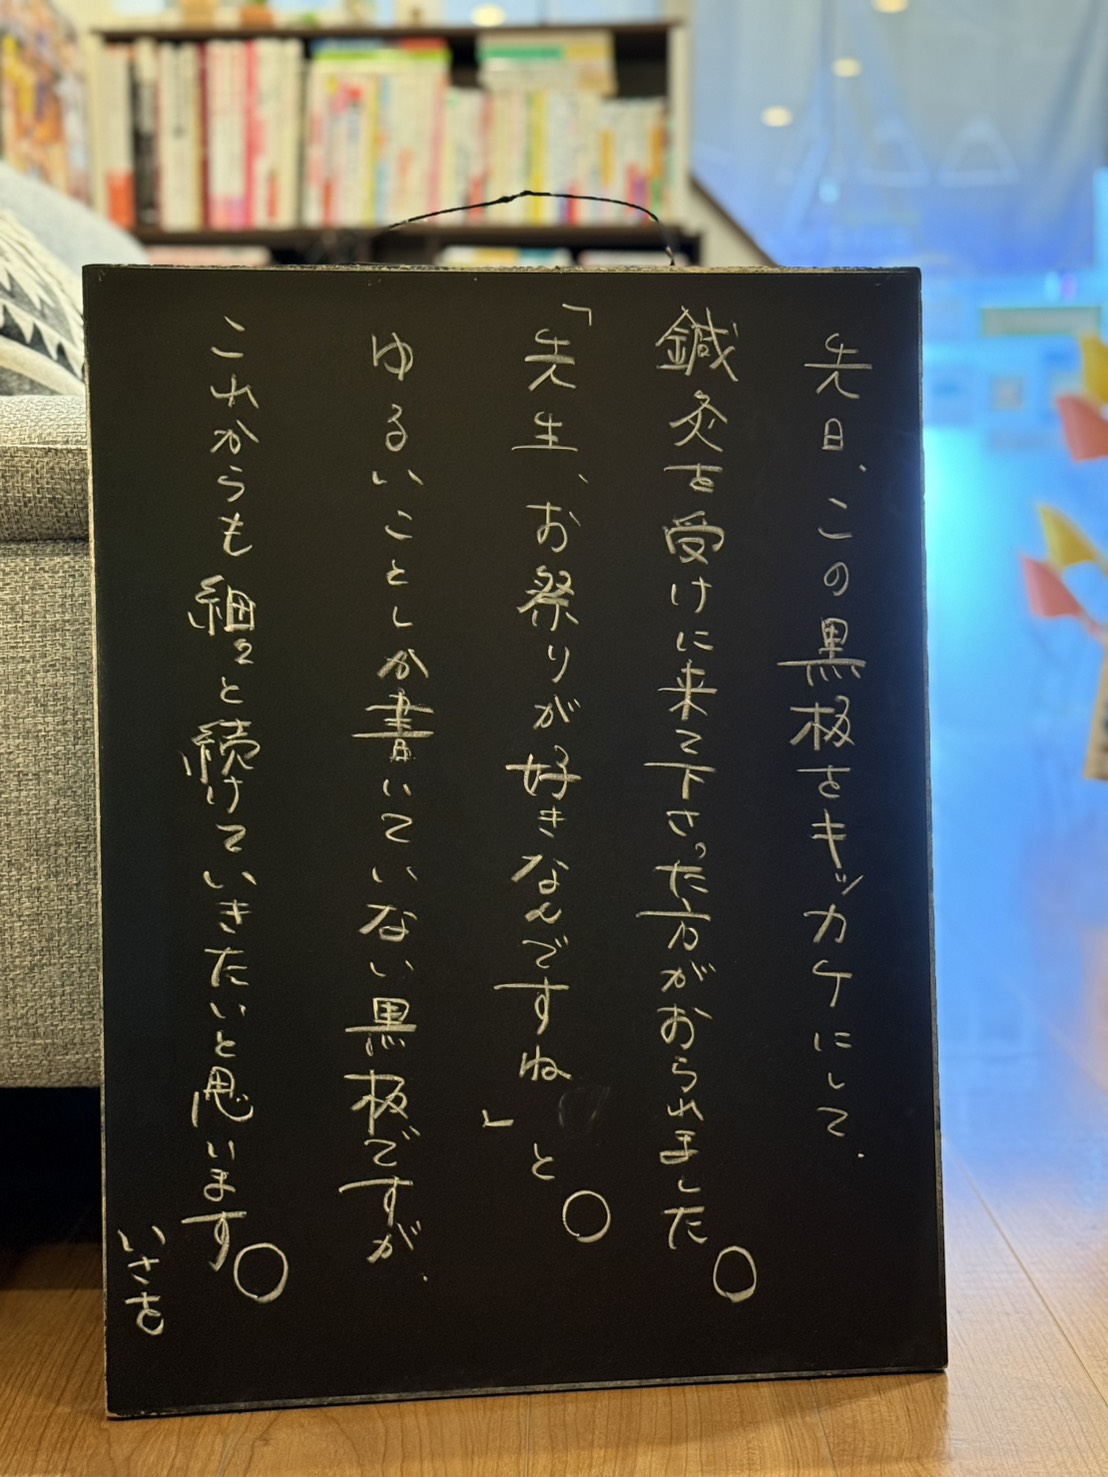 先日、この黒板をキッカケにして、
鍼灸を受けに来て下さった方がおられました。
「先生、お祭りが好きなんですね」と。
ゆるいことしか書いていない黒板ですが、
これからも細々と続けていきたいと思います。
いさを